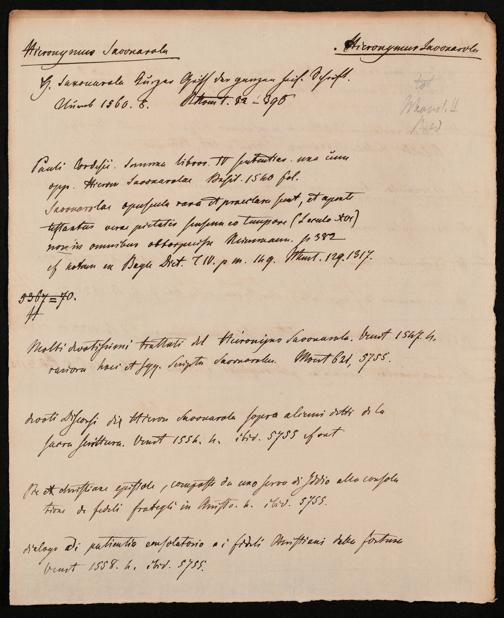 Hieronymus Savonarola Hieronymus Savonarola
H. Savonarola Kurzer der ganzen heil. Schrift.
Nürnb 1560. 8. 82 – 396
Pauli Cordesii. Summa libror. IV sententiar. una cum
opp. Hieron Savonarolae Basil. 1540 fol.
Savonarolae opuscula rara et praeclara sunt, et aperte
verae pietatis sensum eo tempore (seculo XVI)
non in omnibus Reimmann. p 382
cf notam in Bayle Dict. T IV. p m. 149. 129. 1317.
3367 = 70.
Molti devotissimi trattati del Hieronijmo Savonarola. Venet 1547. 4.
rariora haec et scripta Savonarolae. 621, 5755.
devoti Discorsi di Hieron Savonarola sopra alcuni detti de la
sacra scrittura. Venet 1556. 4. ibid. 5755
Pie et christiane epistole, composte da uno servo di Iddio alla consola
tione de fedeli frategli in Christo. 4. ibid. 5755.
dialogo di patientia consolatorio a i fideli Christiani
Venet 1558. 4. ibid. 5755.